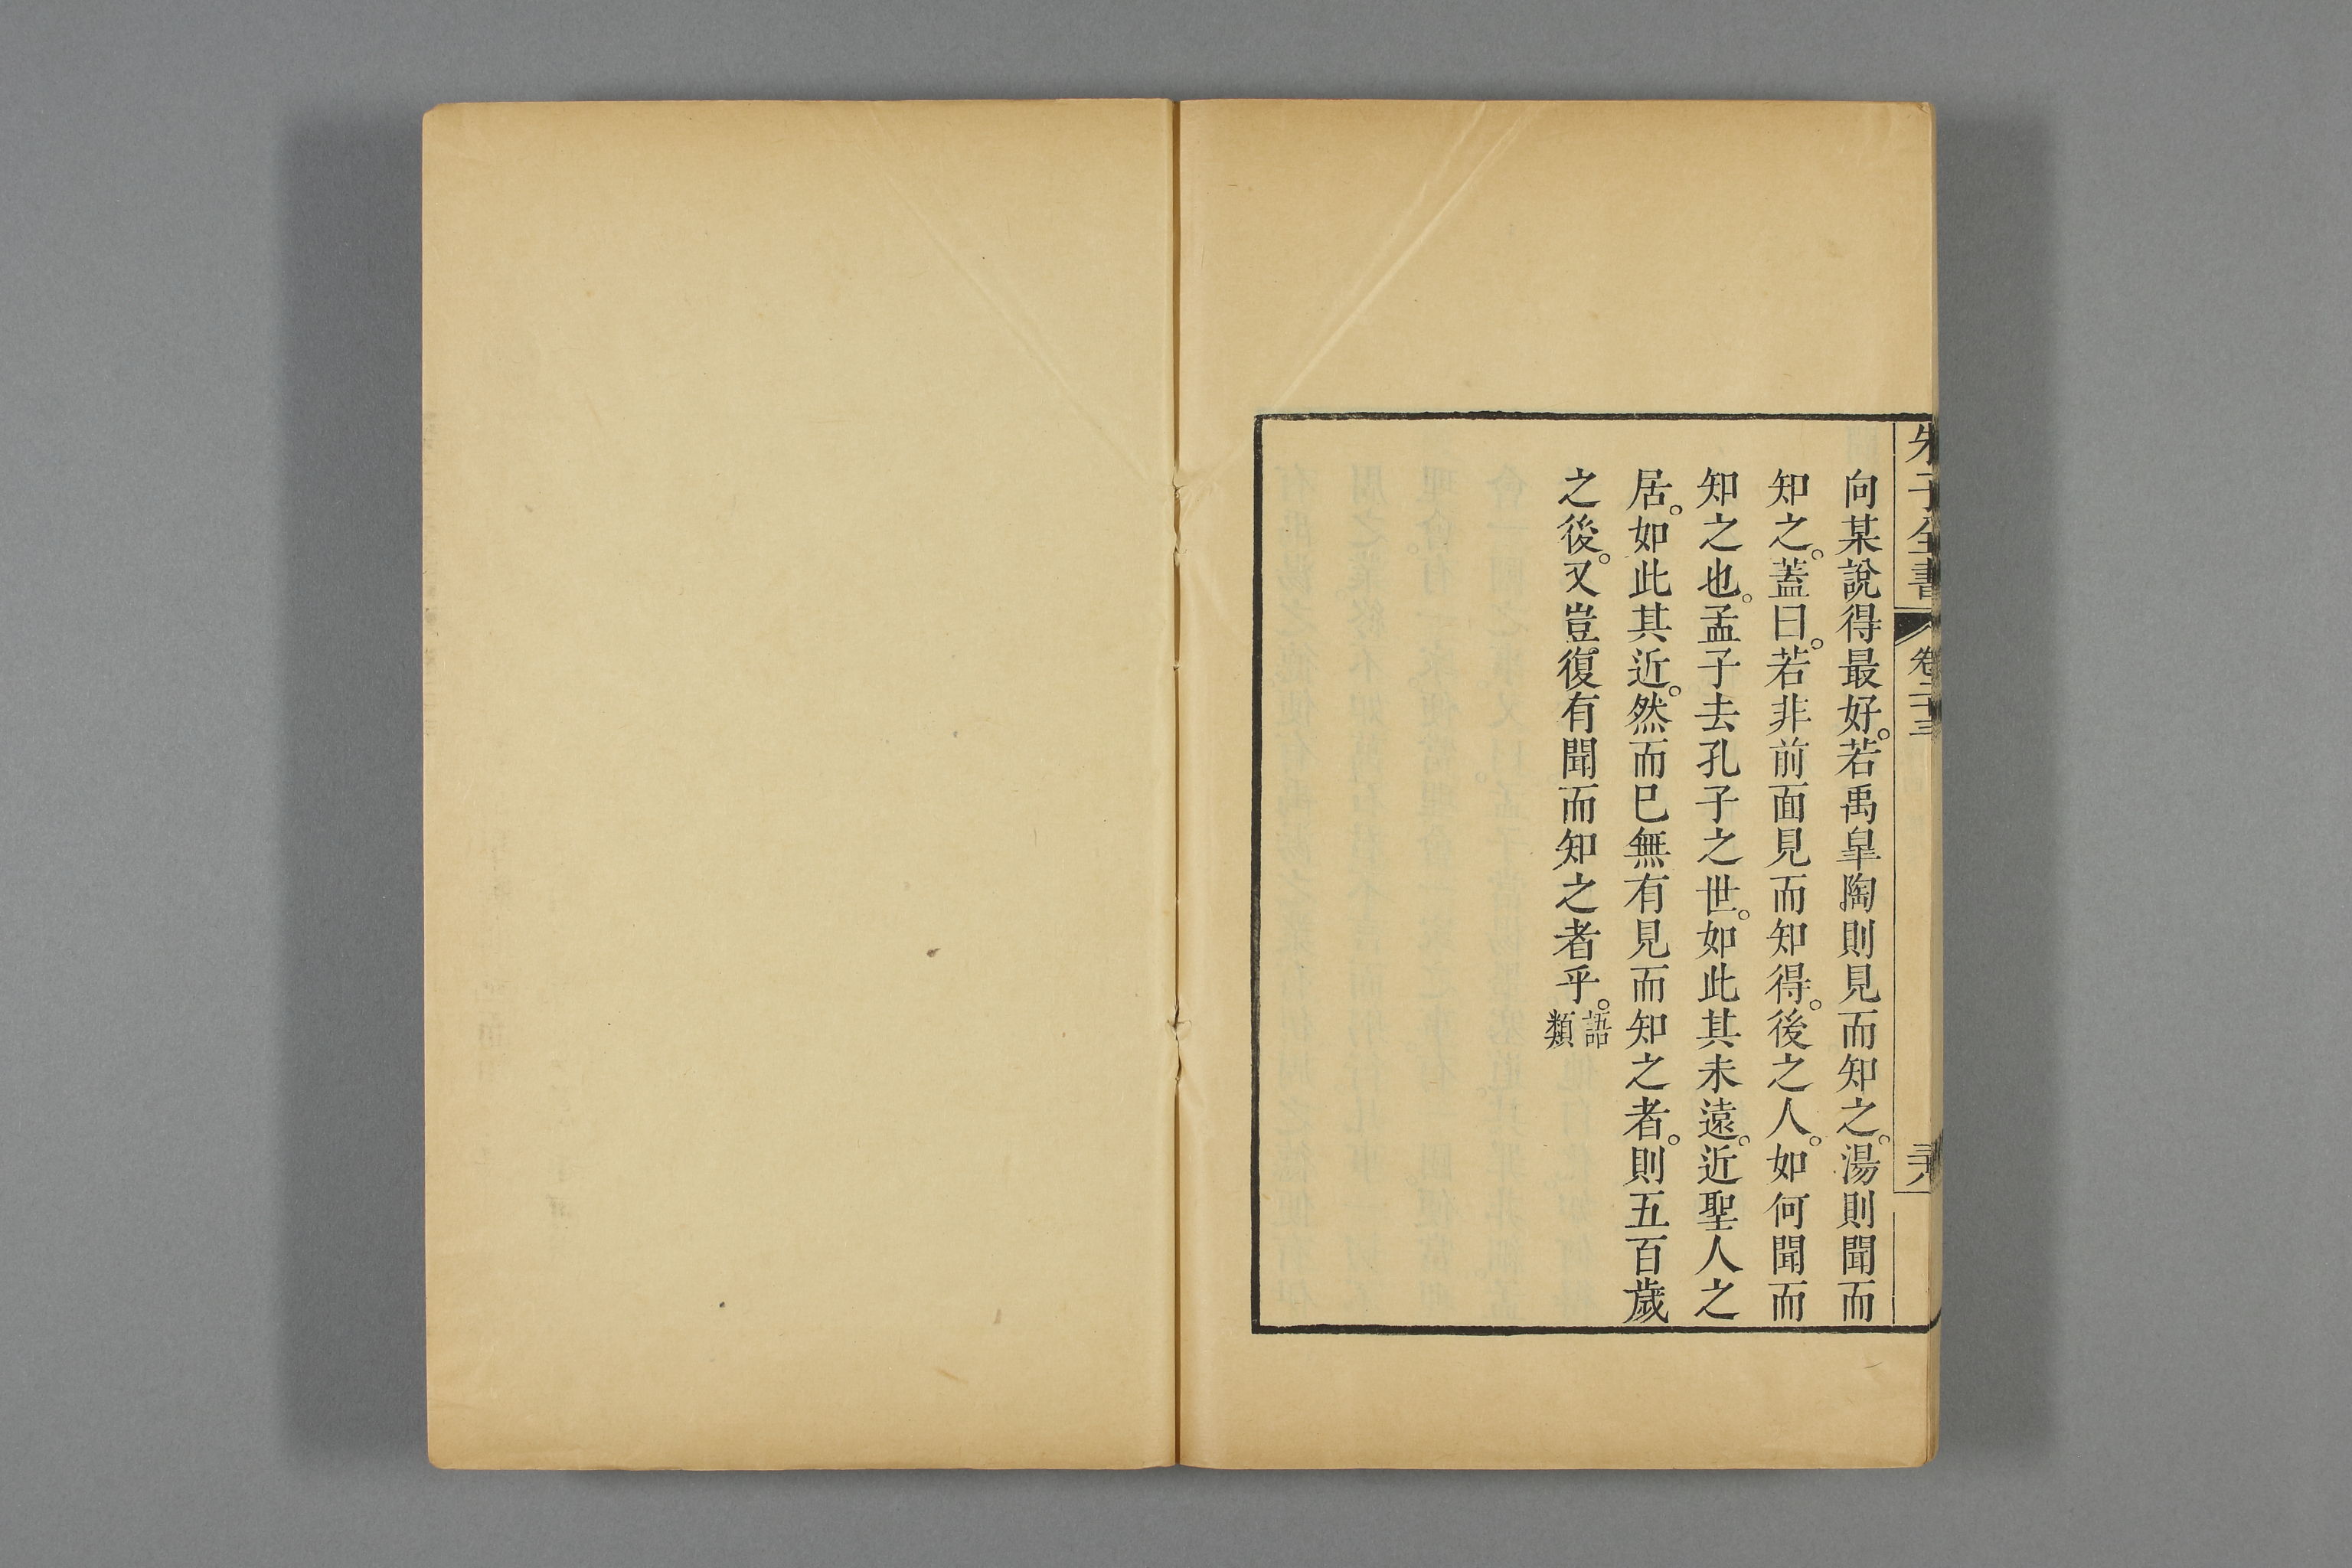 朱子全書 卷二十三 三十八
向某說得最好。若禹臯陶則見而知之。湯則聞而
知之。蓋曰。若非前面見而知得。後之人。如何聞而
知之也。孟子去孔子之世。如此其未遠。近聖人之
居。如此其近。然而已無有見而知之者。則五百歲
之後。又豈復有聞而知之者乎。語類